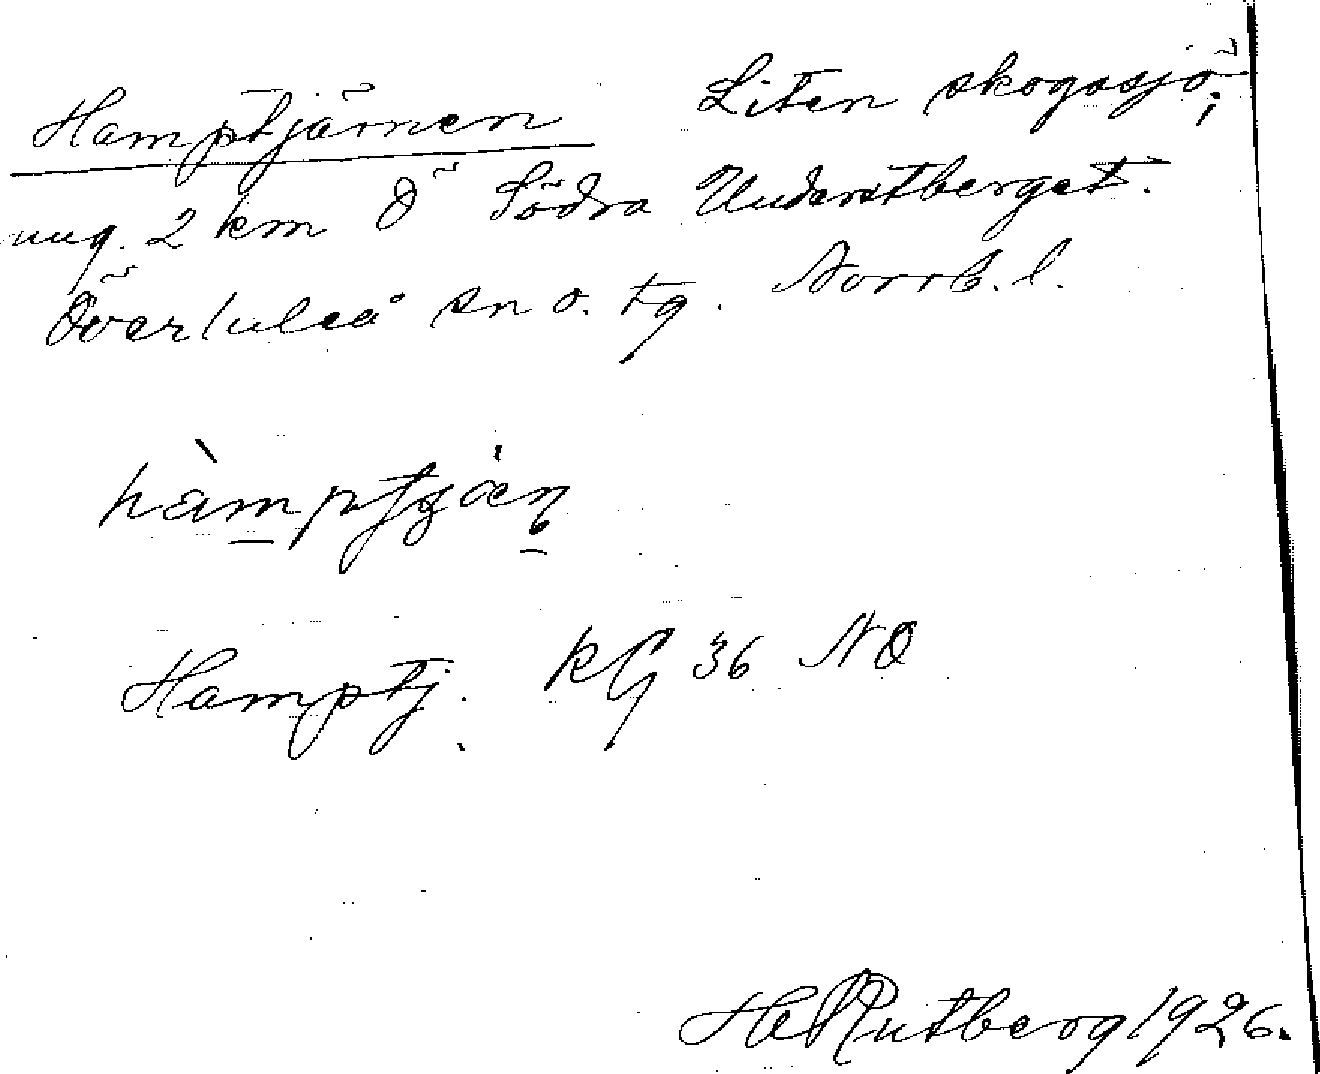 Hamptjärnen Liten skogssjö;
ung. 2 km Ö Södra
Överluleå sn o. tg. Norrb. l.
Hamptj. KG 36 NO
H Rutberg 1926.